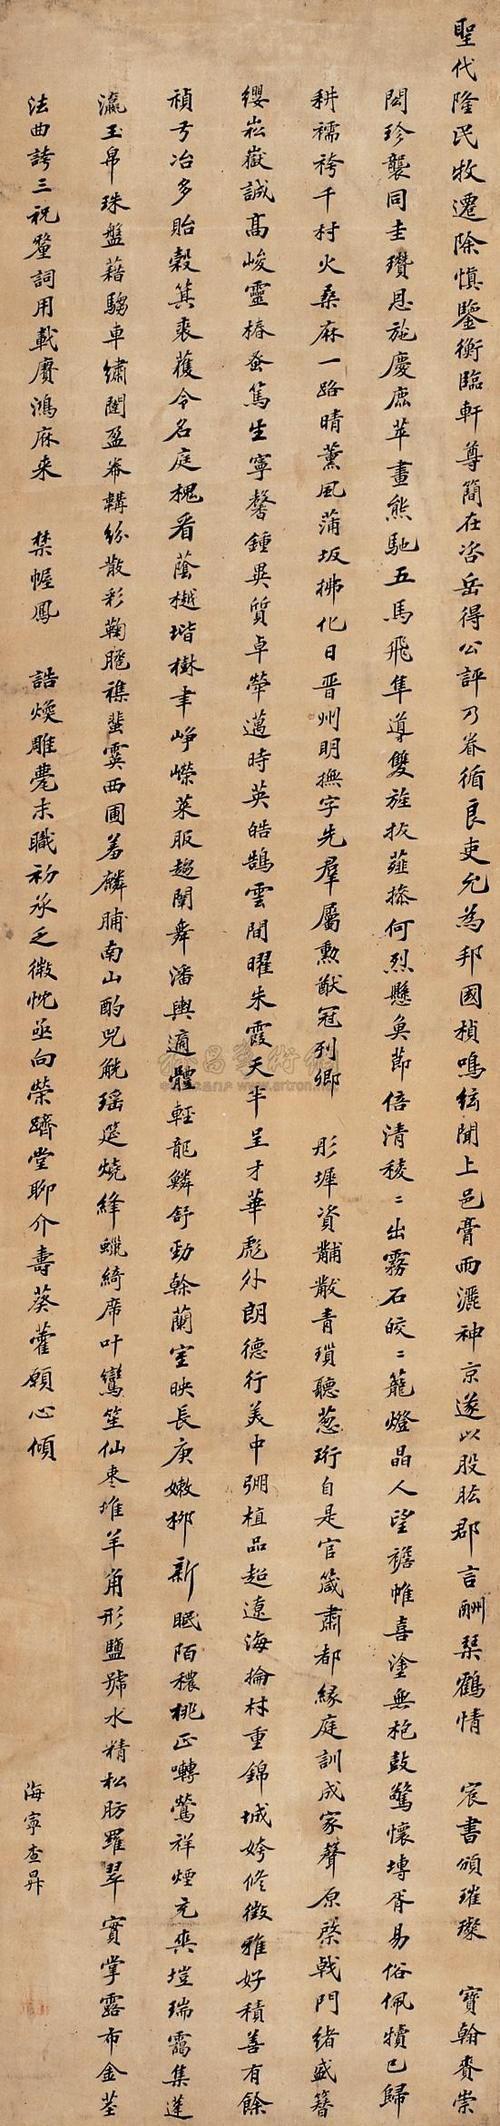 聖代隆民牧遷除慎鑒衡臨軒尊簡在咨岳得公評乃眷循良吏允為邦國楨鳴絃聞上邑膏雨灑神京遂以股肱郡言酬琴鶴情 宸書頒璀璨 寶翰賚崇
閎珍襲同圭瓚恩施慶鹿苹畫熊馳五馬飛隼導雙旌拔薤摻何烈懸魚節倍清稜〻出霧石皎〻籠燈晶人望襜帷喜塗無枹鼓驚懷塼胥易俗佩犢已歸
耕襦袴千村火桑麻一路晴薰風蒲坂拂化日晋州明撫字先羣屬勲猷冠列卿 彤墀資黼黻青瑣聽蔥珩自是官箴肅都緣庭訓成家聲原棨戟門緒盛簪
纓崧嶽誠高峻靈椿蚤篤生寧馨鍾異質卓犖邁時英皓鵠雲間曜朱霞天半呈才華彪外朗德行美中弸植品超遼海掄材重錦城姱修徵雅好積善有餘
禎弓冶多貽穀箕裘蒦令名庭槐看蔭樾堦樹聿崢嶸萊服趨闈舞潘輿適體輕龍鱗舒勁榦蘭室映長庚嫩栁新眠陌穠桃正囀鶯祥煙充爽塏瑞靄集蓬
瀛玉帛珠盤藉騶車繡闥盈帣韝紛散彩鞠䠆襍蜚霙西圃羞麟脯南山酌兕觥瑶筵燒絳蠟綺席叶鸞笙仙棗堆羊角形鹽號水精松肪羅翠實掌露布金莖
法曲誇三祝蕫詞用載賡鴻庥来 禁幄鳳 誥煥雕甍末職初承乏微忱亟向榮躋堂聊介壽葵藿願心傾
海寧查昇